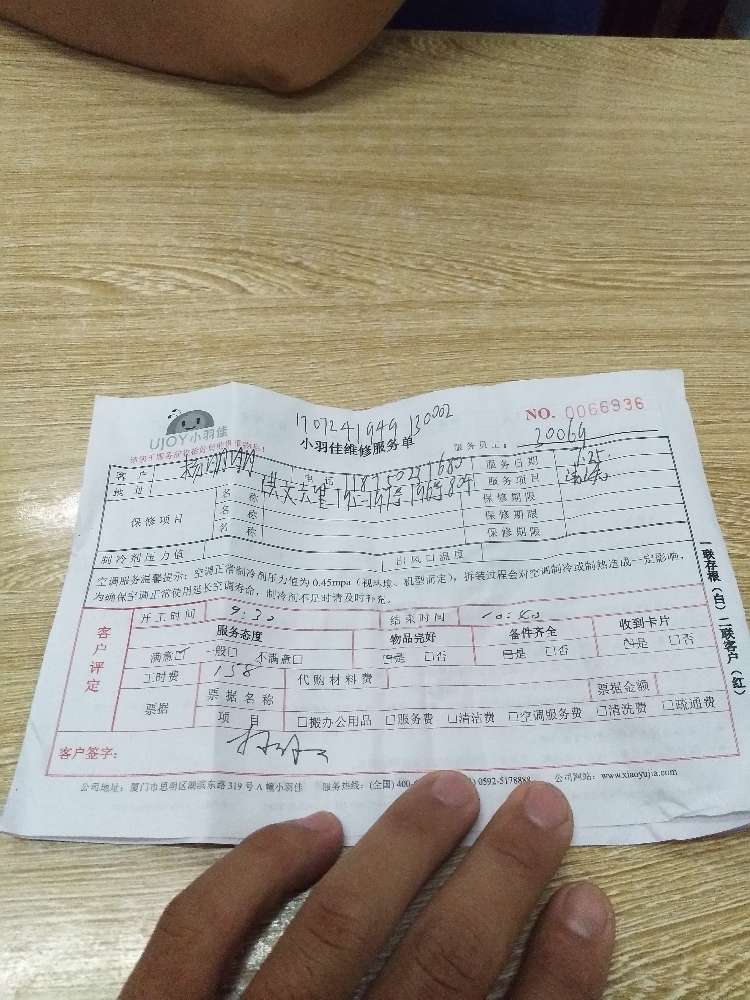 170724194913 0002
NO. 0066936
UJOY小羽佳
小羽佳维修服务单
服务员工： 20069
客户 电话 服务日期 7.25.
地址 服务项目
保修项目 名称 保修期限
名称 保修期限
名称 保修期限
制冷剂压力值 出风口温度
空调服务温馨提示：空调正常制冷剂压力值为0.45mpa（视环境、机型而定），拆装过程会对空调制冷或制热造成一定影响，
为确保空调正常使用延长空调寿命，制冷剂不足时请及时补充。
客户评定
开工时间 9:30 结束时间 10:40
服务态度 物品完好 备件齐全 收到卡片
满意☑ 一般□ 不满意□ ☑是 □否 ☑是 □否 ☑是 □否
工时费 158 代购材料费
票据 票据名称 票据金额
项目 □搬办公用品 □服务费 □清洁费 □空调服务费 □清洗费 □疏通费
客户签字：
公司地址：厦门市思明区湖滨东路319号A幢小羽佳 服务热线：(全国) 400- 0592-5178888 公司网站：www.xiaoyujia.com
一联存根（白）二联客户（红）